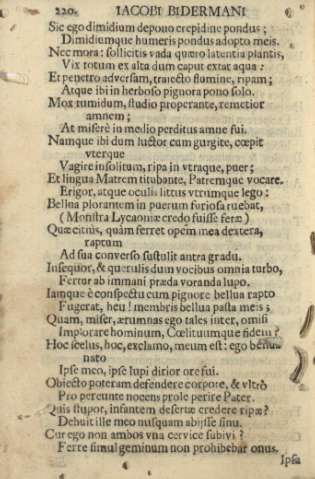 220. IACOBI BIDERMANI
Sic ego dimidium depono crepidine pondus;
Dimidiumque humeris pondus adopto meis.
Nec mora: sollicitus vada quæro latentia plantis,
Vix totum ex alta dum caput extat aqua:
Et penetro adversam, traiecto flumine, ripam;
Atque ibi in herboso pignora pono solo.
Mox tumidum, studio properante, remetior
amnem;
At miserè in medio perditus amne fui.
Namque ibi dum luctor cum gurgite, cœpit
vterque
Vagire insolitum, ripa in vtraque, puer;
Et lingua Matrem titubante, Patremque vocare.
Erigor, atque oculis littus vtrumque lego:
Bellua plorantem in puerum furiosa ruebat,
(Monstra Lycaoniæ credo fuisse feræ)
Quæ citiùs, quàm ferret opem mea dextera,
raptum
Ad sua converso sustulit antra gradu.
Insequor, & querulis dum vocibus omnia turbo,
Fertur ab immani præda voranda lupo.
Iamque è conspectu cum pignore bellua rapto
Fugerat, heu! membris bellua pasta meis;
Quam, miser, ærumnas ego tales inter, omisi
Implorare hominum, Cœlituumque fidem?
Hoc scelus, hoc, exclamo, meum est: ego
nato
Ipse meo, ipse lupi dirior ore fui.
Obiecto poteram defendere corpore, & vltrò
Pro pereunte nocens prole perire Pater.
Quis stupor, infantem desertæ credere ripæ?
Debuit ille meo nusquam abijsse sinu.
Cur ego non ambos vna cervice subivi?
Ferre simul geminum non prohibebar onus.
Ipsa